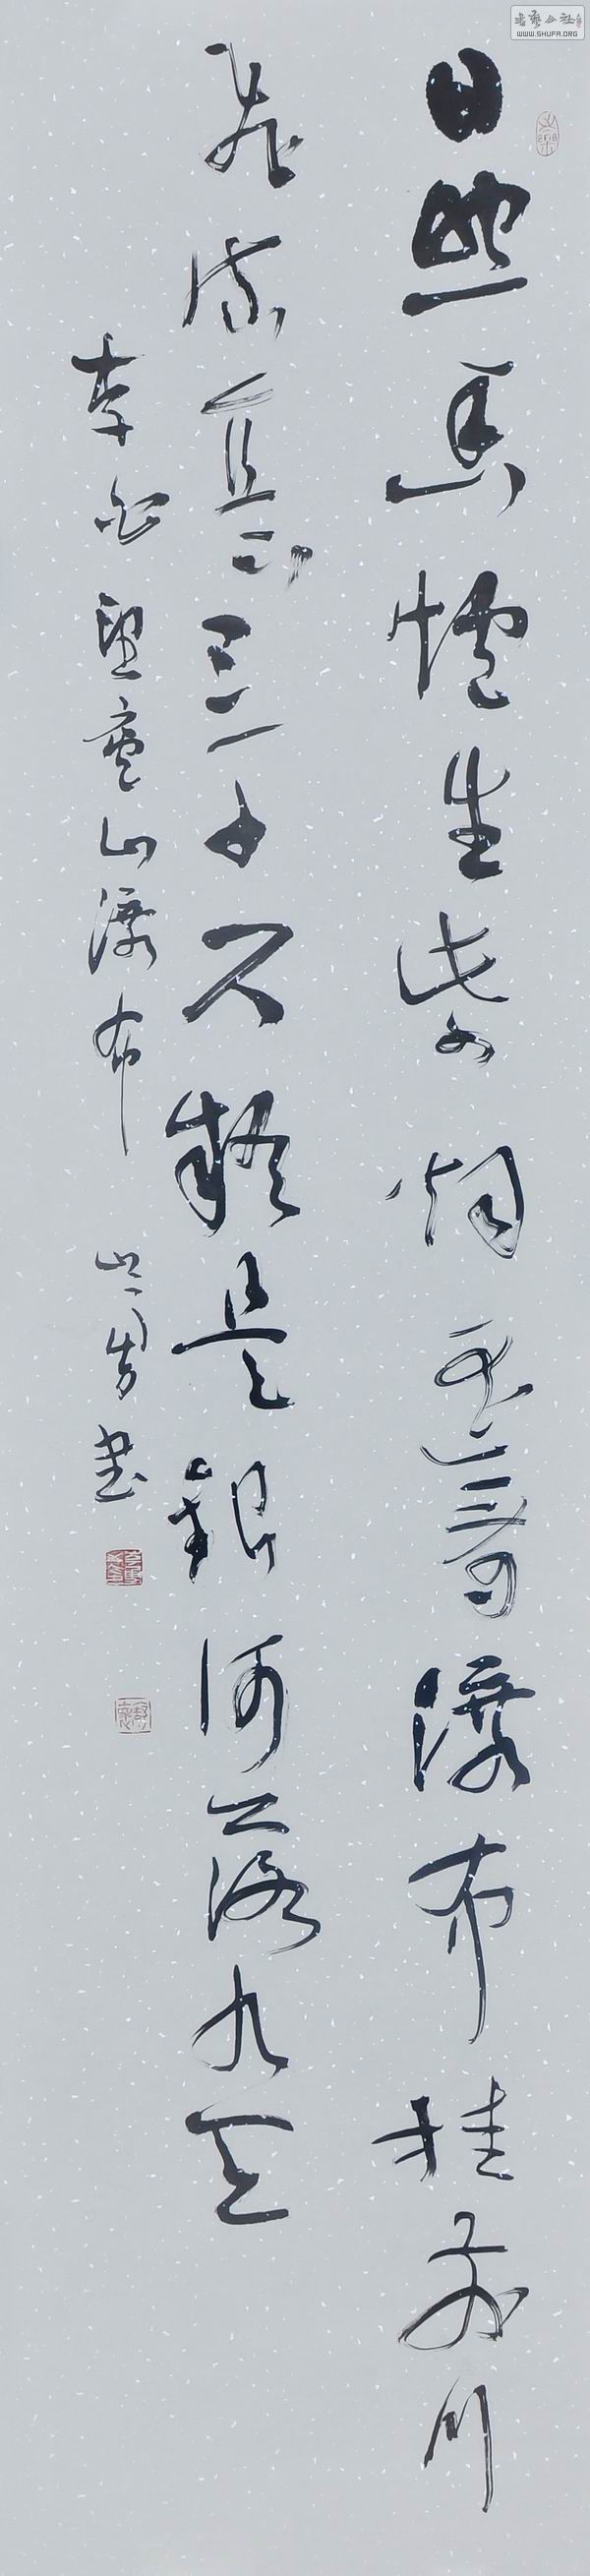 日照香爐生紫烟遥看瀑布挂前川
飛流直下三千尺疑是銀河落九天
李白望廬山瀑布 書
書藝公社
WWW.SHUFA.ORG